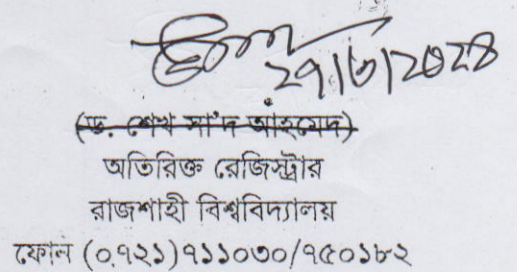 ২৭/৬/২০২৪
(ড. শেখ সা'দ আহমেদ)
অতিরিক্ত রেজিস্ট্রার
রাজশাহী বিশ্ববিদ্যালয়
ফোন (০৭২১)৭১১০৩০/৭৫০১৮২